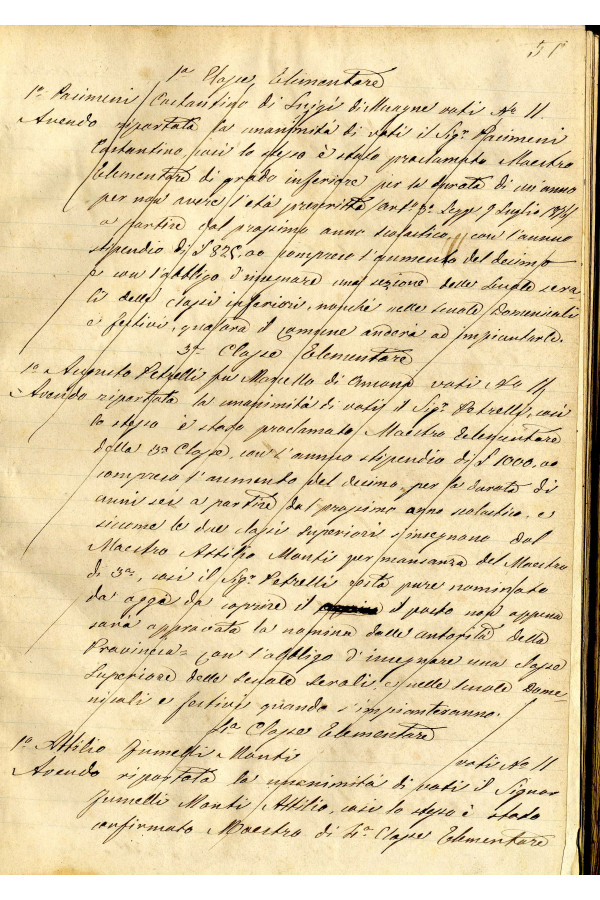 51
1ª Classe Elementare
1º Pacimeni Costantino di Luigi di voti Nº 11.
Avendo riportata la unanimità di voti il Sigʳ Pacimeni
Costantino, così lo stesso è stato proclamato Maestro
Elementare di grado inferiore per la durata di un'anno
per non avere l'età prescritta art.º 3º Legge 9 Luglio
a partire dal prossimo anno scolastico, con l'annuo
stipendio di £ 825,00 compreso l'aumento del decimo
e con l'obbligo d'insegnare una sezione delle Scuole sera-
li delle classi inferiori, nonché nelle scuole Domenicali
e festivi, qualora il comune anderà ad impiantarle.
3ª Classe Elementare
1º Augusto Petrelli fu Marcello di voti Nº 11
Avendo riportata la unanimità di voti il Sigʳ Petrelli, così
lo stesso è stato proclamato Maestro Elementare
della 3ª Classe, con l'annuo stipendio di £ 1000,00
compreso l'aumento del decimo, per la durata di
anni sei a partire dal prossimo anno scolastico, e
siccome le due classi superiori s'insegnano dal
Maestro Attilio Monti per mancanza del Maestro
di 3ª, così il Sigʳ Petrelli resta pure nominato
da oggi da coprire il il posto non appena
sarà approvata la nomina dalle autorità della
Provincia= con l'obbligo d'insegnare una Classe
Superiore delle Scuole Serali, e nelle scuole Dome-
nicali e festivi quando s'impianteranno.
4ª Classe Elementare
1º Attilio Jumelli Monti voti Nº 11
Avendo riportata la unanimità di voti il Signor
Jumelli Monti Attilio, così lo stesso è stato
confirmato Maestro di 4ª Classe Elementare